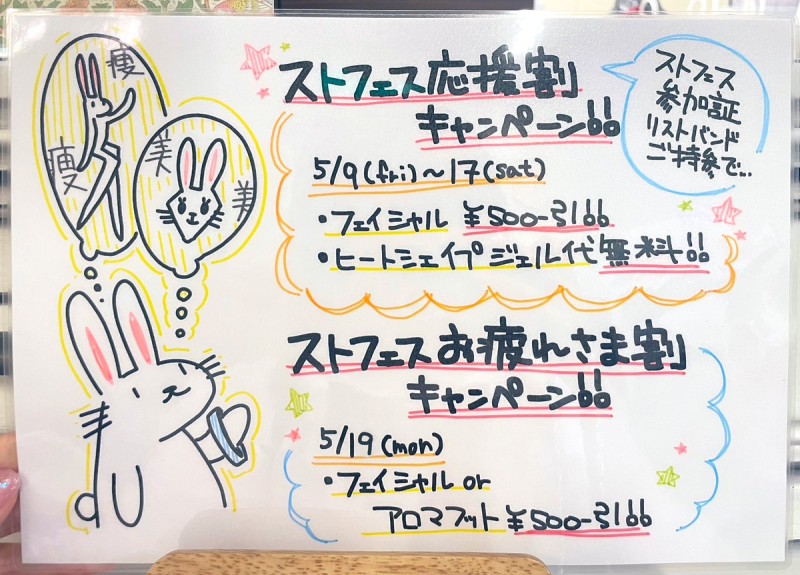 痩
痩
美
美
ストフェス応援割
キャンペーン!!
ストフェス
参加証
リストバンド
ご持参で...
5/9(fri)～17(sat)
・フェイシャル ¥500-引!!
・ヒートシェイプジェル代無料!!
ストフェスお疲れさま割
キャンペーン!!
5/19(mon)
・フェイシャル or
アロマフット¥500-引!!